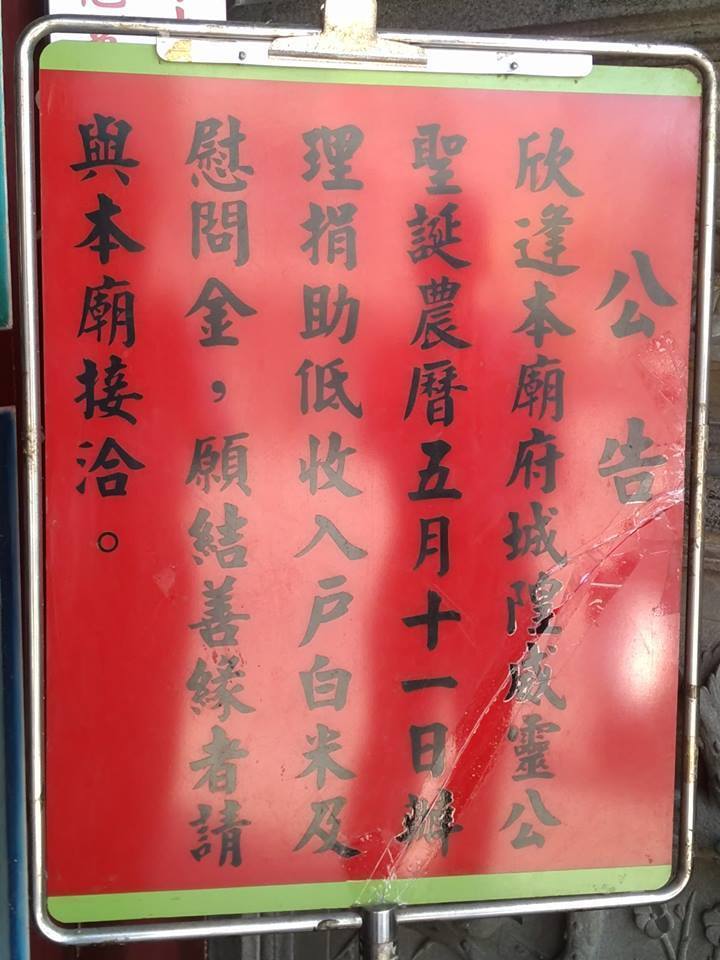 公告
欣逢本廟府城隍威靈公
聖誕農曆五月十一日辦
理捐助低收入戶白米及
慰問金，願結善緣者請
與本廟接洽。